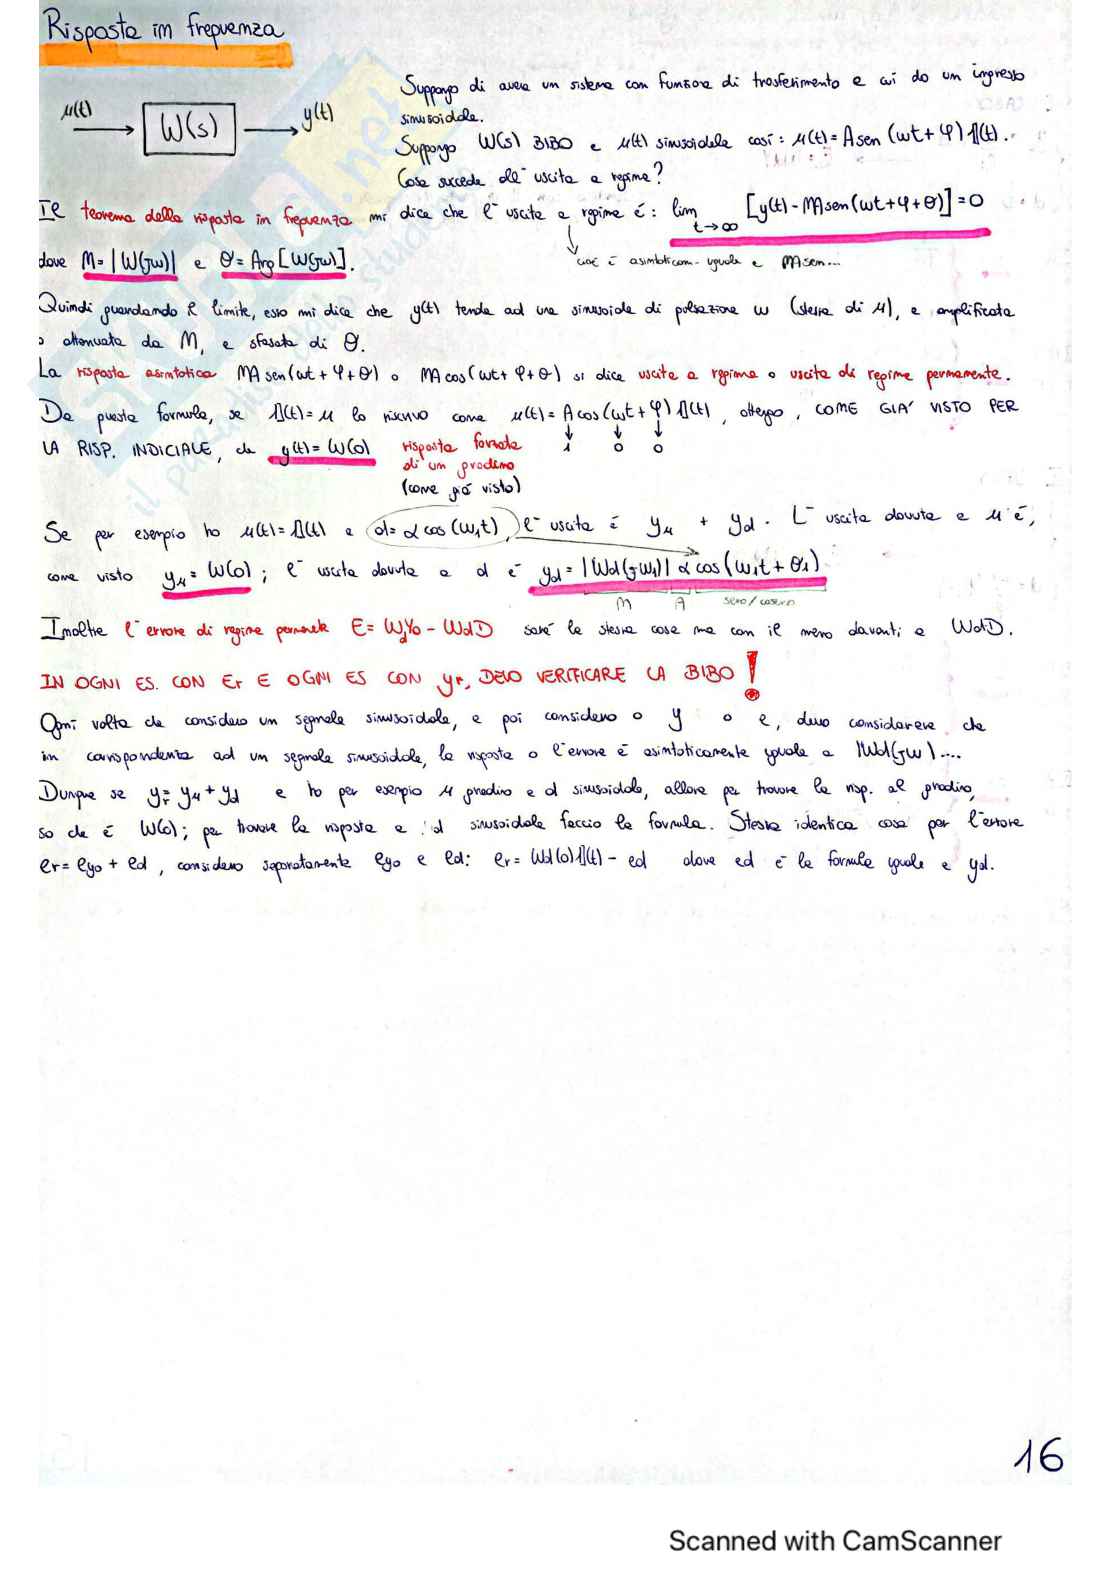 Risposta in frequenza
u(t) W(s) y(t)
Suppongo di avere un sistema con funzione di trasferimento e cui do un ingresso
sinusoidale.
Suppongo W(s) BIBO e u(t) sinusoidale così: u(t) = A sen (ωt + φ) 1(t).
Cosa succede all'uscita a regime?
Il teorema della risposta in frequenza mi dice che l'uscita a regime è: lim t→∞ [y(t) - MA sen(ωt + φ + θ)] = 0
cioè è asintoticam. uguale a MA sen...
dove M = |W(jω)| e θ = Arg [W(jω)].
Quindi guardando il limite, esso mi dice che y(t) tende ad una sinusoide di pulsazione ω (stessa di u), e amplificata
o attenuata da M, e sfasata di θ.
La risposta asintotica MA sen(ωt + φ + θ) o MA cos(ωt + φ + θ) si dice uscita a regime o uscita di regime permanente.
Da questa formula, se 1(t) = u lo riscrivo come u(t) = A cos (ωt + φ) 1(t), ottengo, COME GIA' VISTO PER
1 0 0
LA RISP. INDICIALE, che y(t) = W(0) risposta forzata
di un gradino
(come già visto)
Se per esempio ho u(t) = 1(t) e d = α cos (ω1t), l'uscita è yu + yd. L'uscita dovuta a u è,
come visto yu = W(0); l'uscita dovuta a d è yd = |Wd(jω1)| α cos (ω1t + θ1)
M A seno/coseno
Inoltre l'errore di regime permanente E = WdY0 - WdD sarà la stessa cosa ma con il meno davanti a WdD.
IN OGNI ES. CON Er E OGNI ES CON yr, DEVO VERIFICARE LA BIBO!
Ogni volta che considero un segnale sinusoidale, e poi considero o y o e, devo considerare che
in corrispondenza ad un segnale sinusoidale, la risposta o l'errore è asintoticamente uguale a |Wd(jω)....
Dunque se yr = yu + yd e ho per esempio u gradino e d sinusoidale, allora per trovare la risp. al gradino,
so che è W(0); per trovare la risposta a d sinusoidale faccio la formula. Stessa identica cosa per l'errore
er = ey0 + ed, considero separatamente ey0 e ed: er = Wd(0)1(t) - ed dove ed è la formula uguale a yd.
16
Scanned with CamScanner